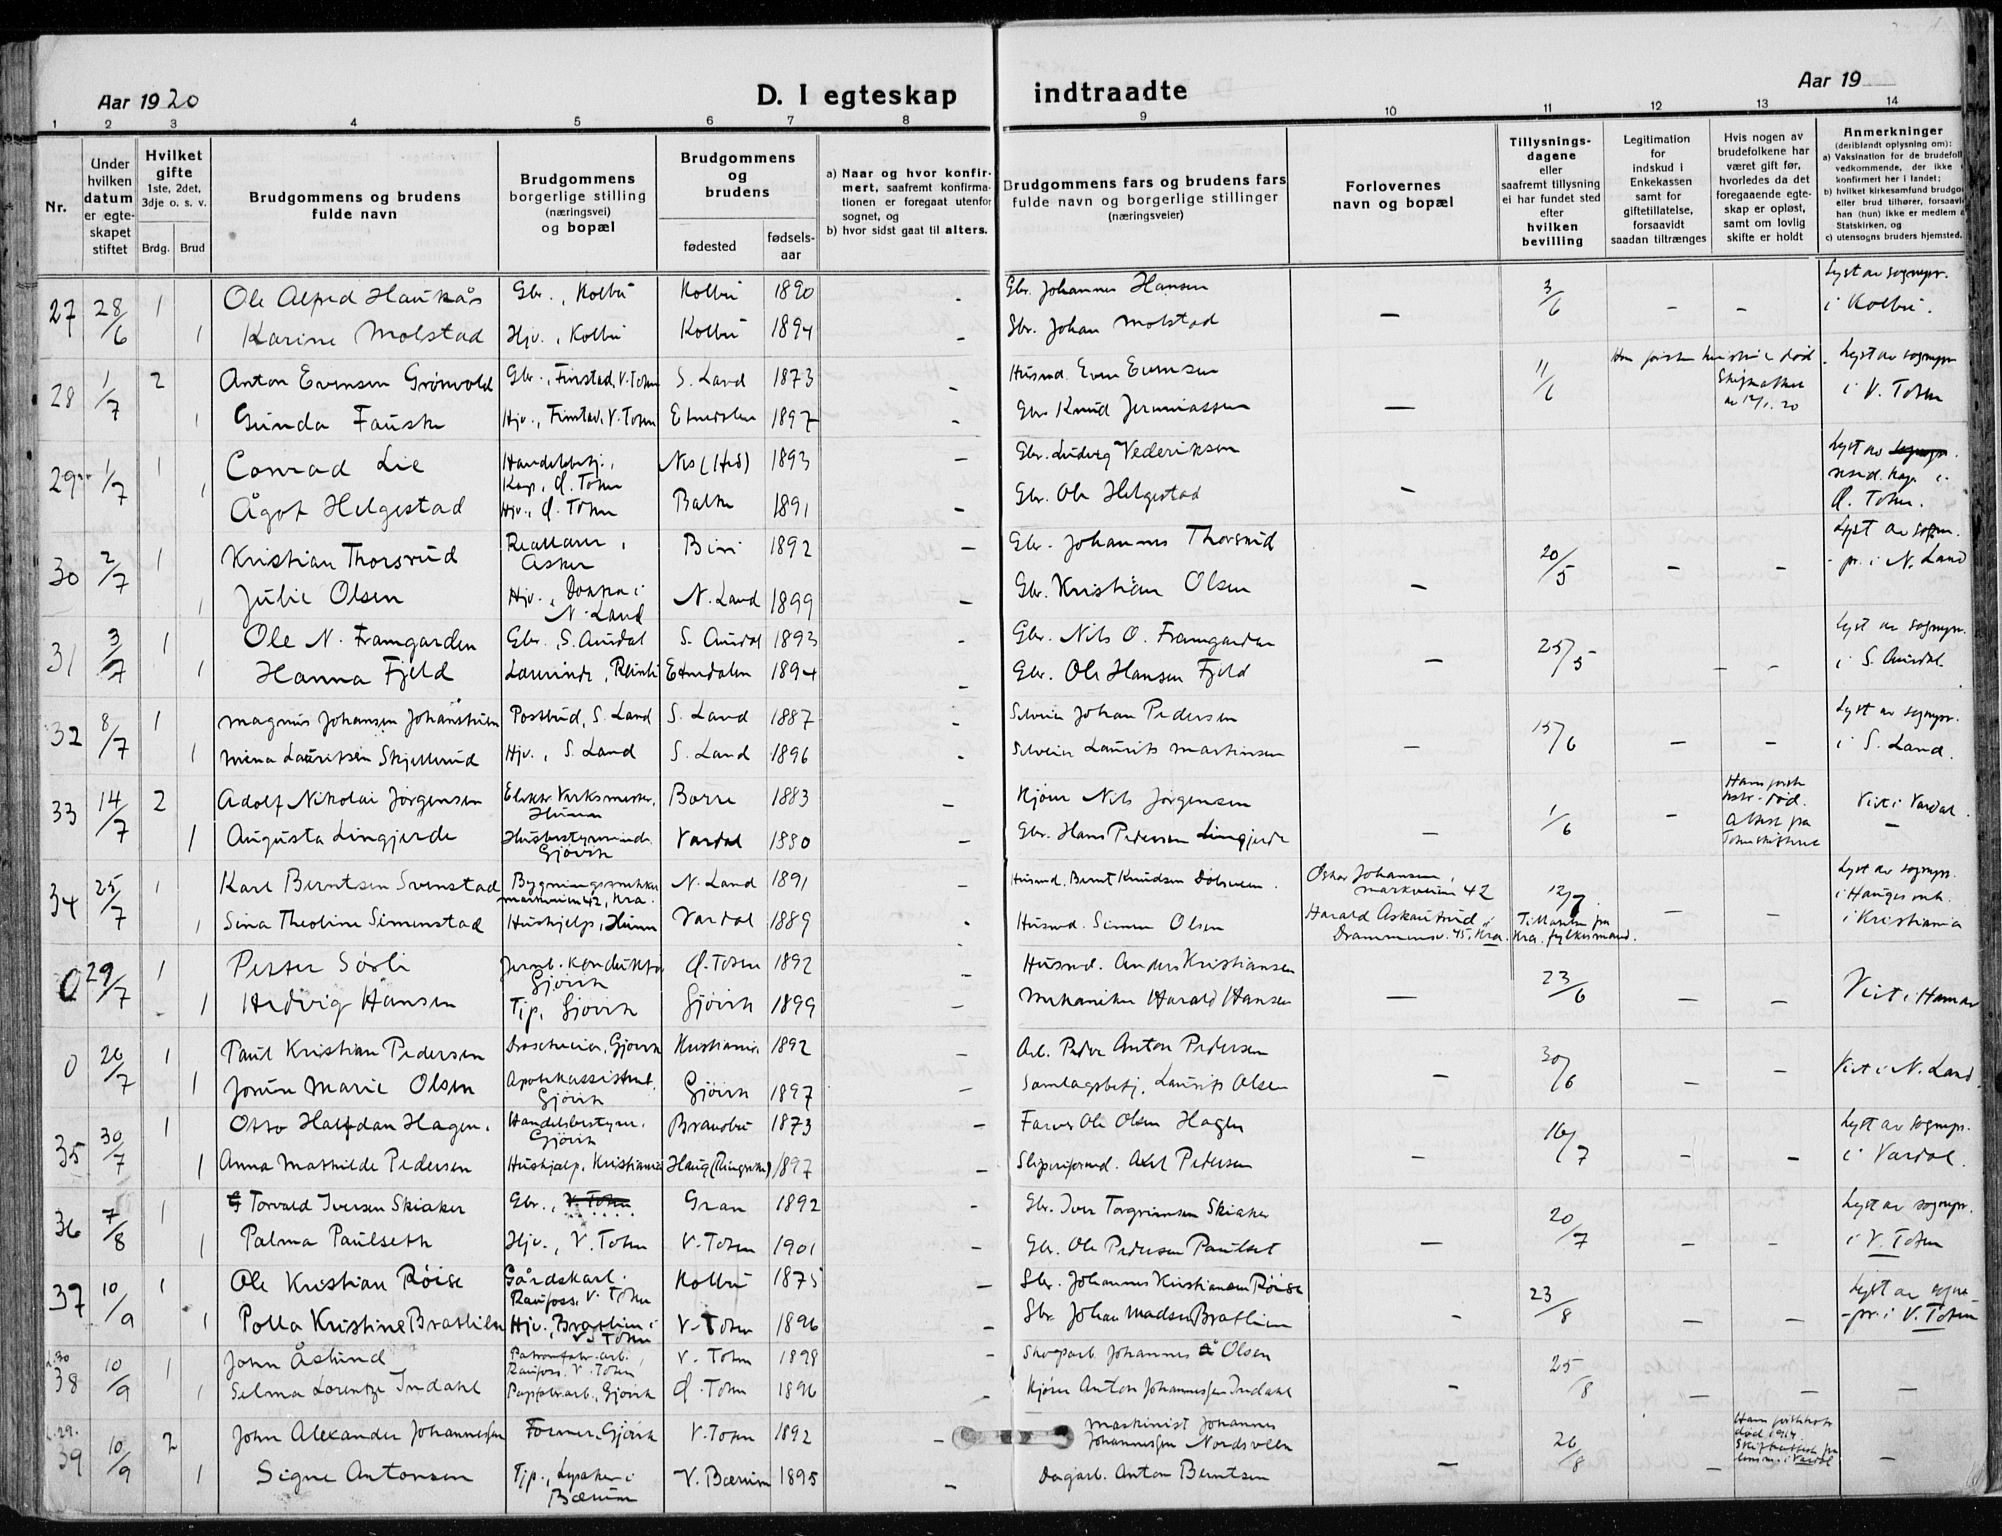 Aar 1920
D. I egteskap
indtraadte
Aar 19
1 2 3 4 5 6 7 8 9 10 11 12 13 14
Nr.
Under
hvilken
datum
er egte-
skapet
stiftet
Hvilket
gifte
1ste, 2det,
3dje o. s. v.
Brdg. Brud
Brudgommens og brudens
fulde navn
Brudgommens
borgerlige stilling
(næringsvei)
og bopæl
Brudgommens
og
brudens
fødested
fødsels-
aar
a) Naar og hvor konfir-
mert, saafremt konfirma-
tionen er foregaat utenfor
sognet, og
b) hvor sidst gaat til alters.
Brudgommens fars og brudens fars
fulde navn og borgerlige stillinger
(næringsveier)
Forlovernes
navn og bopæl
Tillysnings-
dagene
eller
saafremt tillysning
ei har fundet sted
efter
hvilken
bevilling
Legitimation
for
indskud i
Enkekassen
samt for
giftetillatelse,
forsaavidt
saadan tiltrænges
Hvis nogen av
brudefolkene har
været gift før,
hvorledes da det
foregaaende egte-
skap er opløst,
samt om lovlig
skifte er holdt
Anmerkninger
(deriblandt oplysning om):
a) Vaksination for de brudefol
vedkommende, der ikke
konfirmert her i landet;
b) hvilket kirkesamfund brudgo
eller brud tilhører, forsaavi
han (hun) ikke er medlem a
Statskirken, og
c) utensogns bruders hjemsted.
27 28/6 1 Ole Alfred Haukås Gbr., Kolbu Kolbu 1890 - Gbr. Johannes Hansen — 3/6 - - Lyst av sognepr.
1 Karine Molstad Hjv., Kolbu Kolbu 1894 - Gbr. Johan Molstad i Kolbu.
28 1/7 2 Anton Evensen Grönvold Gbr., Finstad, V. Toten S. Land 1873 - Husmd. Even Evensen — 11/6 Lyst av sognepr
1 Gunda Fauske Hjv., Finstad, V. Toten Etnedalen 1897 - Gbr. Knud Jeremiassen i V. Toten
29 1/7 1 Conrad Lie Handelsbetj., Nes (Hed) 1893 - Gbr. Ludvig Vederiksen - Lyst av sognepr.
Kap, Ø. Toten resid. kap. i
1 Ågot Helgestad Hjv., Ø. Toten Balke 1891 - Gbr. Ole Helgestad Ø. Toten.
30 2/7 1 Kristian Thorsrud Biri 1892 - Gbr. Johannes Thorsrud 20/5 - - Lyst av sogn-
Asker pr. i N. Land
1 Julie Olsen Hjv., Dokka i N. Land 1899 - Gbr. Kristian Olsen -
N. Land
31 3/7 1 Ole N. Framgarden Gbr., S. Aurdal S. Aurdal 1893 - Gbr. Nils O. Framgarden 25/5 Lyst av sognepr.
1 Hanna Fjeld Lærerinde, Reinli Etnedalen 1894 - Gbr. Ole Hansen Fjeld - - - i S. Aurdal.
32 8/7 1 Magnus Johansen Postbud, S. Land S. Land 1887 - Selveier Johan Pedersen 15/6 Lyst av sognepr.
1 Mina Lauritsen Skjellerud Hjv., S. Land S. Land 1896 - Selveier Laurits Martinsen - - - i S. Land.
33 14/7 2 Adolf Nikolai Jörgensen Elektr. Verksmester, Borre 1883 - Kjörer Nils Jörgensen 1/6 - Viet i Vardal.
Hunn
1 Augusta Lingjerde Husbestyrerinde Vardal 1880 - Gbr. Hans Pedersen Lingjerde —
Gjövik
34 25/7 1 Karl Berntsen Svenstad Bygningssnekker N. Land 1891 - Husmd. Bernt Knudsen Oskar Johansen, 12/7 Lyst av sognepr.
Markveien 42, Kra. markveien 42 i Hauges mk.
1 Sina Theoline Simenstad Hushjelp, Hunn Vardal 1889 - Husmd. Simen Olsen Harald Askautrud i Tillatelse fra - - i Kristiania
Drammensv. 45, Kra. Kra. fylkesmand.
0 29/7 1 Petter Sörli Jernb. konduktör Ø. Toten 1892 - Husmd. Anders Kristiansen 23/6
Gjövik
1 Hedvig Hansen Tjp. Gjövik Gjövik 1899 - Mekaniker Harald Hansen — - - Viet i Hamar
0 26/7 1 Paul Kristian Pedersen Droscheeier, Gjövik Kristiania 1892 - Arb. Peder Anton Pedersen 30/6 Viet i N. Land.
1 Jorun Marie Olsen Apotekassistent, Gjövik 1897 Samlagsbetj. Laurits Olsen - - -
Gjövik
35 30/7 1 Otto Halfdan Hagen. Handelsbestyrer, Brandbu 1873 - Farver Ole Olsen Hagen 16/7 Lyst av sognepr.
Gjövik
1 Anna Mathilde Pedersen Hushjelp, Kristiania Haug (Ringerike) 1897 Sliperiformd. Axel Pedersen - - - i Vardal.
36 7/8 1 Torvald Iversen Skiaker Gbr., V. Toten Gran 1892 - Gbr. Iver Torgrimsen Skiaker 20/7 Lyst av sognepr.
1 Palma Paulseth Hjv., V. Toten V. Toten 1901 - Gbr. Ole Pedersen Paulset - - - i V. Toten
37 10/9 1 Ole Kristian Röise Gårdskarl. Kolbu 1875 - Gbr. Johannes Kristiansen Röise 23/8 Lyst av sogne-
Raufoss, V. Toten
1 Polla Kristine Bratlien Hjv. Bratlien i V. Toten 1896 - Gbr. Johan Madsen Bratlien - - - pr. i V. Toten
V. Toten
38 10/9 1 John Åslund Patronfabr. arb., V. Toten 1898 - Skogarb. Johannes Olsen 25/8
Raufoss. V. Toten
1 Selma Lorentze Indahl Papfabr. arb., Gjövik Ø. Toten 1896 Kjörer Anton Johannessen Indahl - - - -
39 10/9 2 John Alexander Johannessen Former, Gjövik V. Toten 1892 - Maskinist Johannes 26/8
Johannessen Nordsveen
1 Signe Antonsen Tjp., Lysaker i V. Bærum 1895 - Dagarb. Anton Berntsen - - -
Bærum